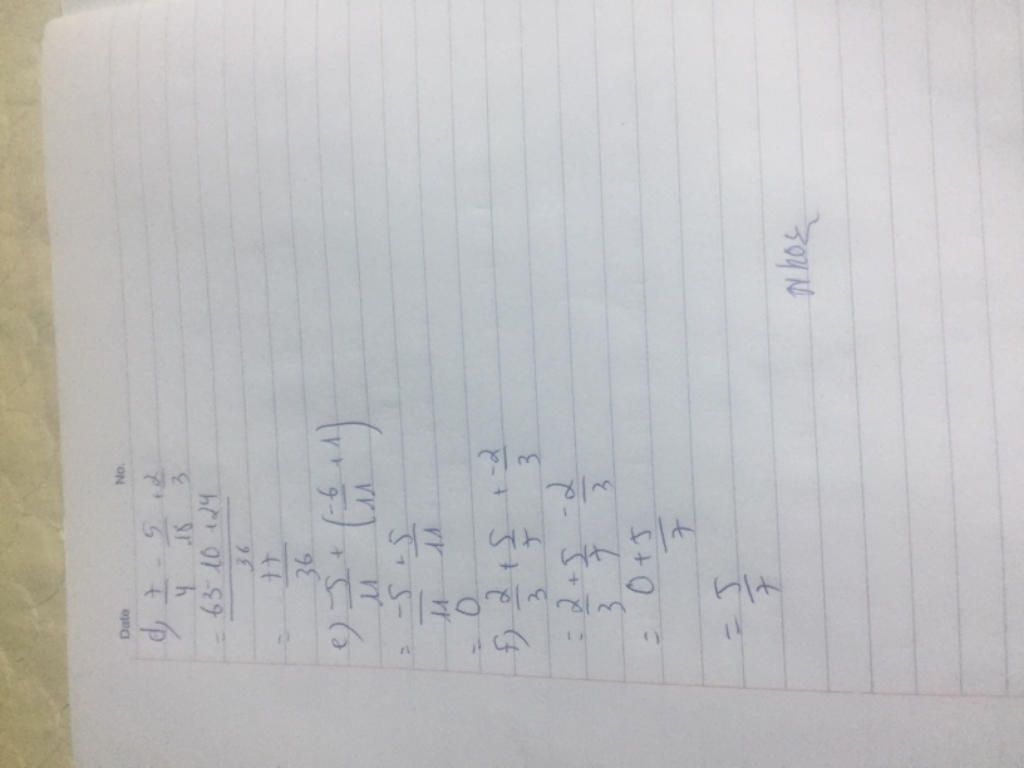 Date No.
d) 7/4 - 5/18 + 2/3
= 63-10+24/36
= 77/36
e) -5/11 + (-6/11 + 1)
= -5/11 + 5/11
= 0
f) 2/3 + 5/7 + -2/3
= 2/3 + 5/7 - 2/3
= 0 + 5/7
= 5/7